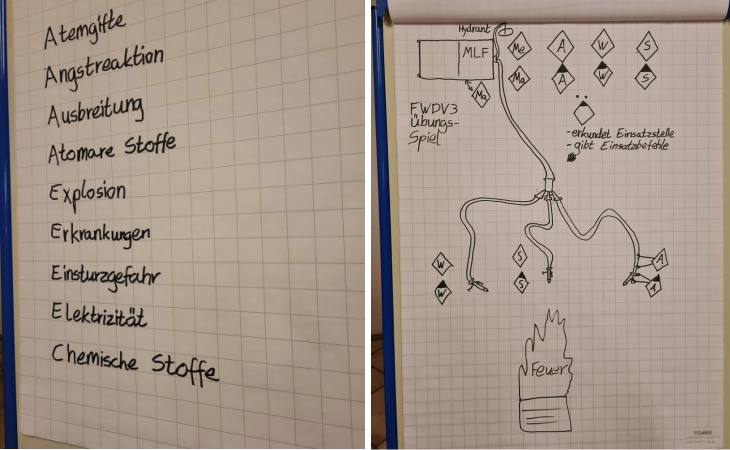 Atemgifte
Angstreaktion
Ausbreitung
Atomare Stoffe
Explosion
Erkrankungen
Einsturzgefahr
Elektrizität
Chemische Stoffe
Hydrant
MLF
Me A W S
Ma A W S
Ma
FWDV3
Übungs-
Spiel
- erkundet Einsatzstelle
- gibt Einsatzbefehle
W S A
W S A
Feuer